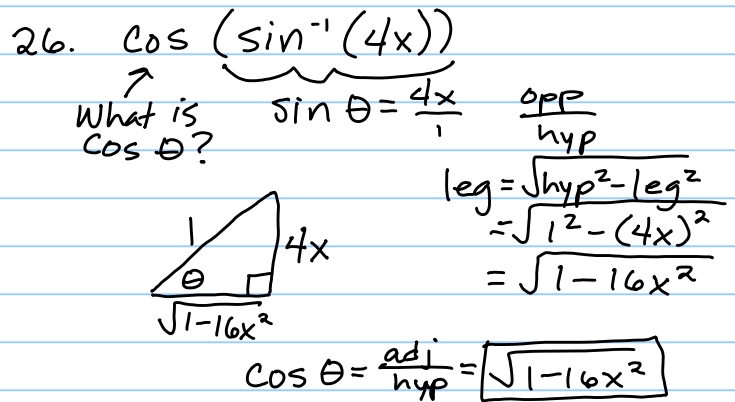 26. cos (sin⁻¹(4x))
What is cos θ?
sin θ = 4x/1 opp/hyp
leg = √(hyp² - leg²)
= √(1² - (4x)²)
= √(1 - 16x²)
1
4x
θ
√(1-16x²)
cos θ = adj/hyp = √(1-16x²)